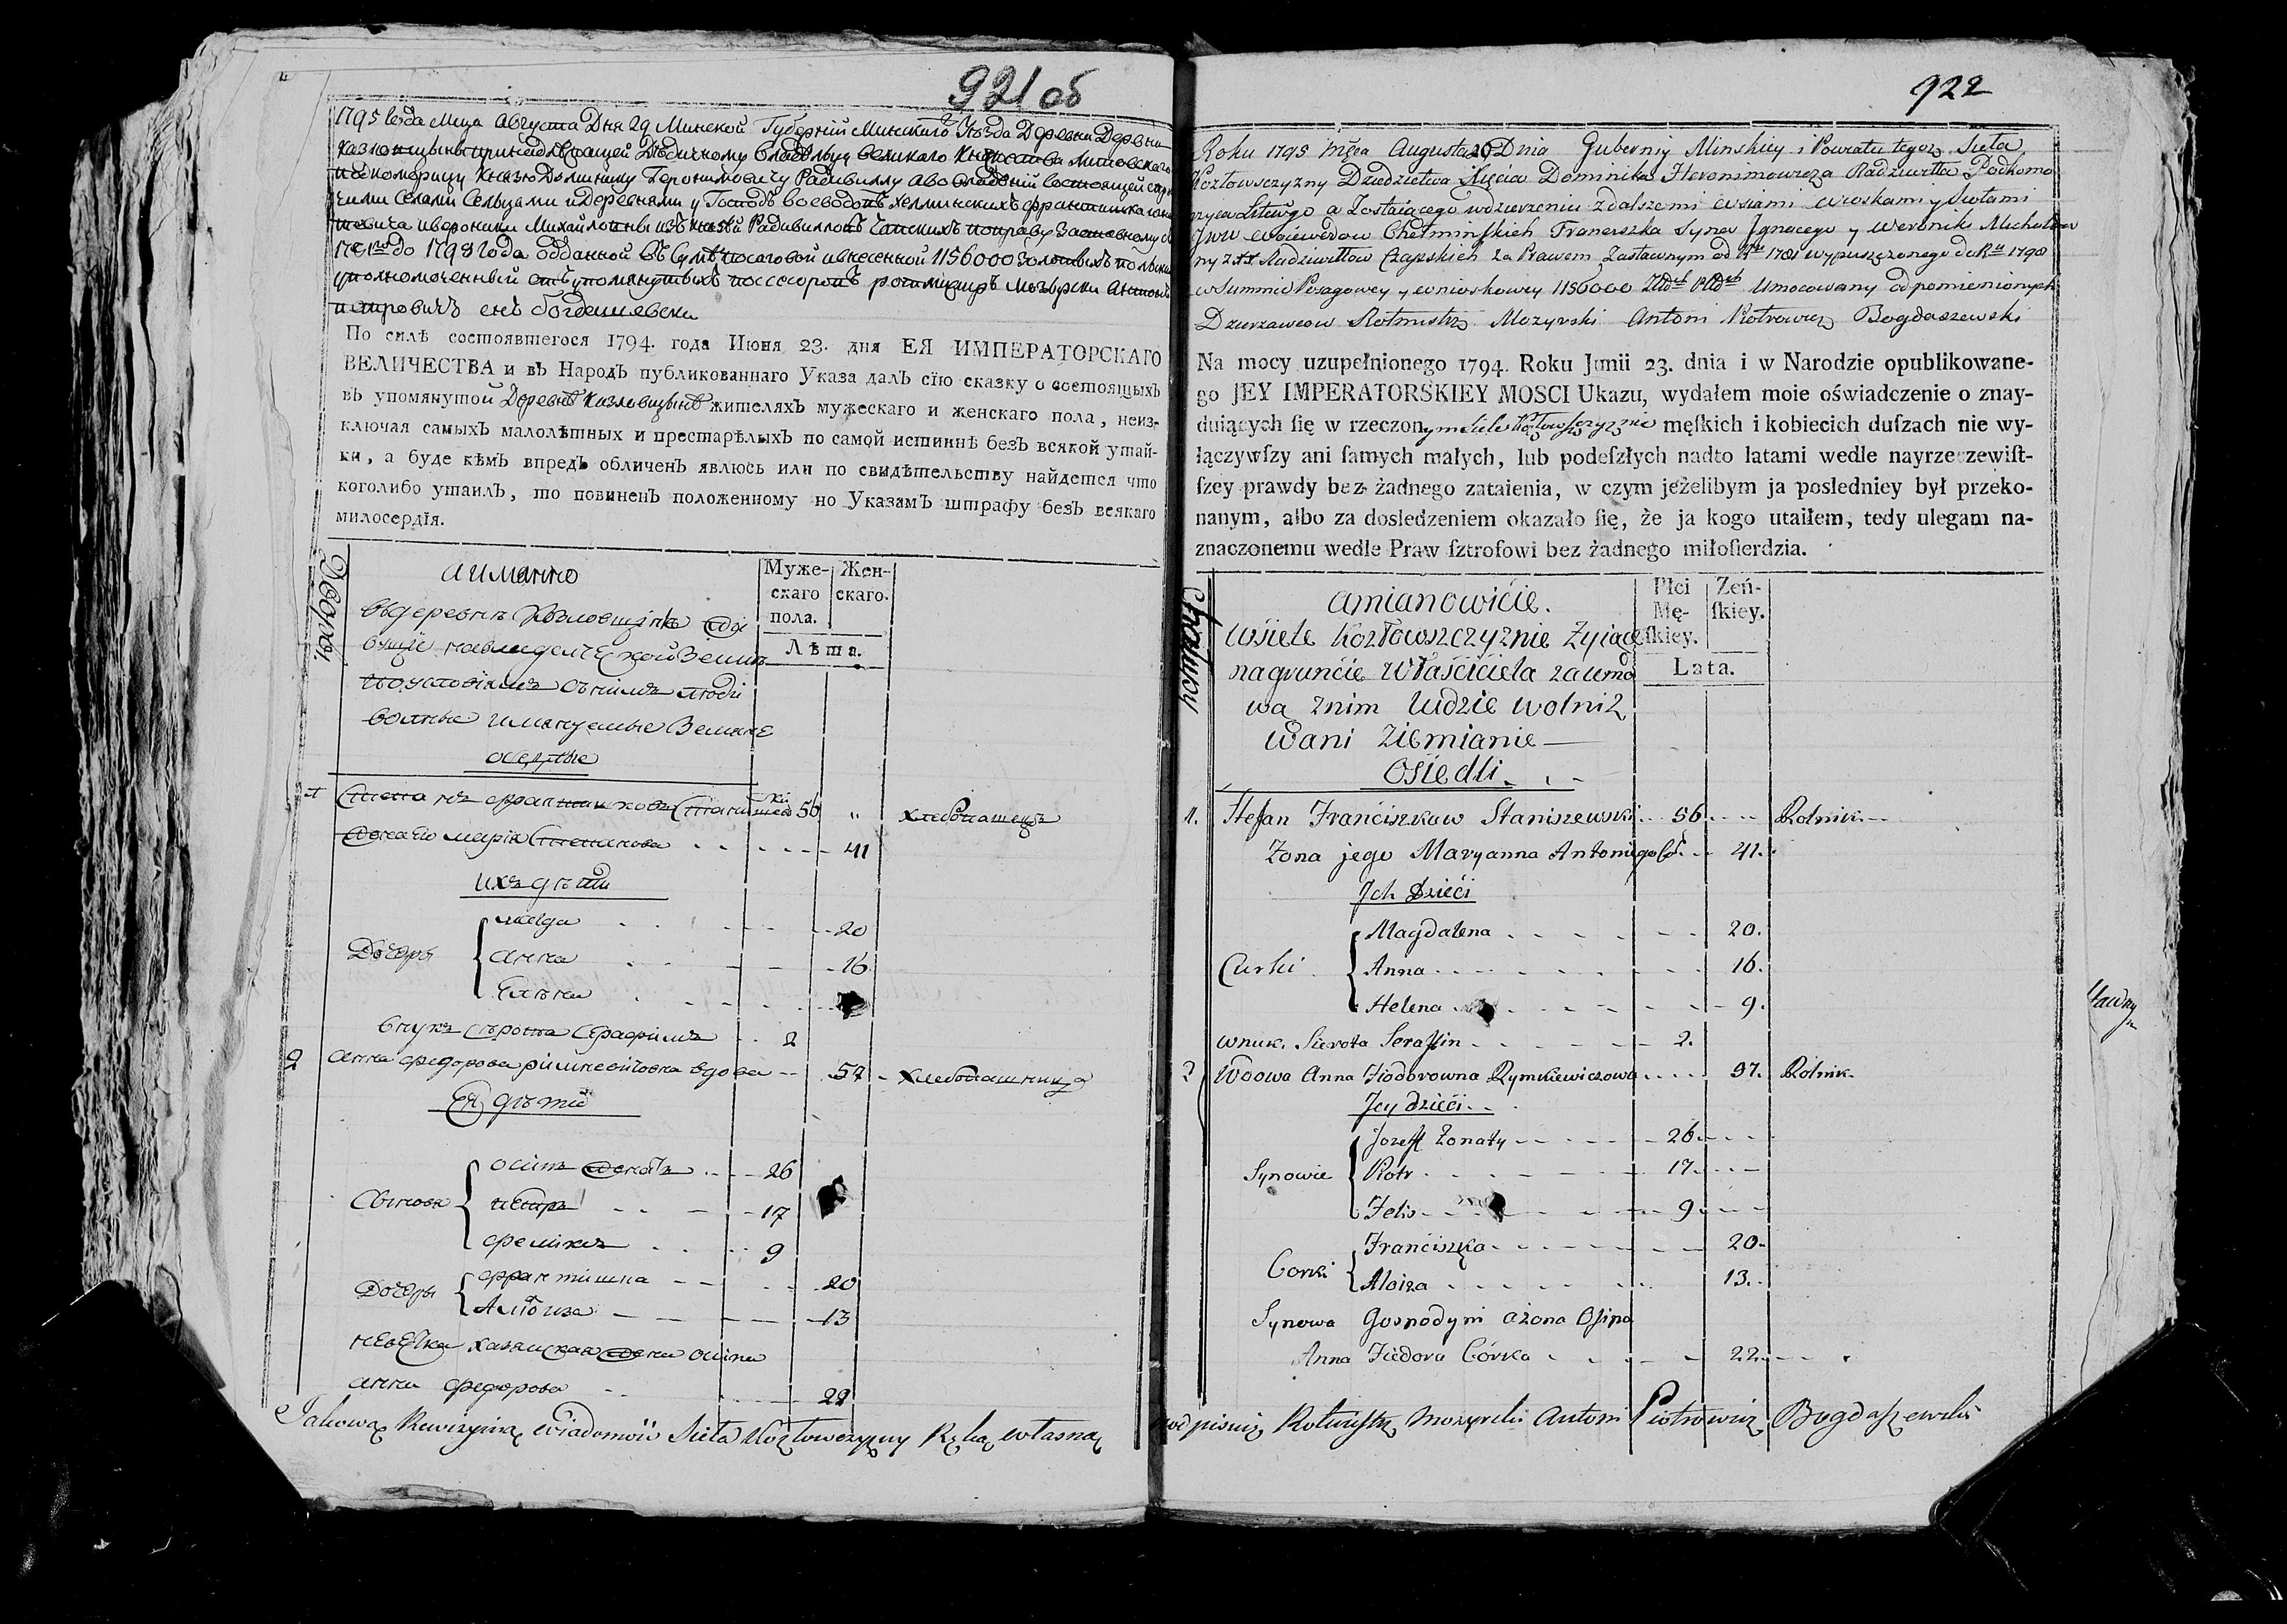 921 об
1795 года Мца Августа Дня 29 Минской Губернии Минскаго Уезда Деревни
Казловщины принадлежащей Дедичному Владельцу Великаго Княжества Литовскаго
подкоморицу Князю Доминику Геронимовичу Радивиллу а во владении состоящей
чими Селами Сельцами и деревнями у Господъ воеводовъ хелминскихъ Франтишка
и вероники Михайловны изъ князей Радивилловъ Чапскихъ по праву заставному
до 1798 года отданной въ Сумме посаговой и внесенной 1156000 золотыхъ польскихъ
уполномоченный отъ упомянутыхъ поссесоровъ ротмистръ Мозырски Антонъ
петровичъ Богдашевски
По силѣ состоявшегося 1794. года Июня 23. дня ЕЯ ИМПЕРАТОРСКАГО
ВЕЛИЧЕСТВА и въ Народъ публикованнаго Указа далъ сїю сказку о состоящыхъ
въ упомянутой Деревне Казловщыне жителяхъ мужескаго и женскаго пола, неиз-
ключая самыхъ малолѣтныхъ и престарѣлыхъ по самой истиннѣ безъ всякой утай-
ки, а буде кѣмъ впредъ обличенъ явлюсь или по свидѣтельству найдется что
коголибо утаилъ, то повиненъ положенному по Указамъ штрафу безъ всякаго
милосердія.
Дворы.
Муже- Жен-
скаго скаго.
пола.
Лѣта.
а имянно
въ деревне
земли
по условіямъ съ нимъ люди
волные имянуемые Земяне
оседлые
1 56 „ хлебопашецъ
жена его марія 41
ихъ дети
Дочеры
магда 20
анна 16
Елена
внукъ сирота Серафимъ 2
2 анна федорова вдова 57 хлебопашница
Ея дети
Сыновя
осипъ женатъ 26
петръ 17
феликсъ 9
Дочеры
франтишка 20
Алоиза 13
невестка жена осипа
анна федорова 22
Takową Rewizyiną wiadomość Sieła Kozłowczyzny Ręką własną
922
Roku 1795 mca Augusta 29 Dnia Gubernij Minskiey i Powiatu tegoż Sieła
Kozłowszczyzny Dziedzictwa Xięcia Dominika Heronimowicza Radziwiłła Podkomo
rzyca Litewgo a Zostaiącego w dzierzeniu z dalszemi wsiami wioskami y siołami
JWW Woiewodow Chełmińskich Franciszka Syna Jgnacego y Weroniki Michałow
ny z XX Radziwiłłow Czapskich za Prawem Zastawnym od Rku 1781 wypuszczonego do Rku 1798
w Summie Posagowey y wnioskowey 1156000 Złłch Plłch Umocowany od pomienionych
Dzierzawcow Rotmistrz Mozyrski Antoni Piotrowicz Bogdaszewski
Na mocy uzupełnionego 1794. Roku Junii 23. dnia i w Narodzie opublikowane-
go JEY IMPERATORSKIEY MOSCI Ukazu, wydałem moie oświadczenie o znay-
duiących ſię w rzeczonym Siele Kozłowszczyznie męſkich i kobiecich duſzach nie wy-
łączywſzy ani ſamych małych, lub podeſzłych nadto latami wedle nayrzeczewiſt-
ſzey prawdy bez żadnego zataienia, w czym jeżelibym ja posledniey był przeko-
nanym, albo za dosledzeniem okazało ſię, że ja kogo utaiłem, tedy ulegam na-
znaczonemu wedle Praw ſztrofowi bez żadnego miłoſierdzia.
Płci Żeń-
Mę- ſkiey.
ſkiey.
Lata.
amianowićie.
w Siele Kozłowszczyznie żyiące
na grunćie właśćićiela za umo
wą z nim ludzie wolni z
wani ziemianie
Osiedli.
1. Stefan Franćiszkow Staniszewski 56 Rolnik
Żona jego Maryanna Antoniego Cór. 41.
Jch Dzieći
Curki
Magdalena 20.
Anna 16.
Helena 9.
wnuk Sierota Seraffin 2.
2 Wdowa Anna Fiodorowna Rymkiewiczowa 57. Rolnik
Jey dzieći
Synowie
Jozeff Żonaty 26
Piotr 17
Felix 9
Corki
Franćiszka 20
Aloiza 13.
Synowa Gospodyni a żona Osipa
Anna Fiedora Córka 22
podpisuię Rotmistrz Mozyrski Antoni Piotrowicz Bogdaszewski